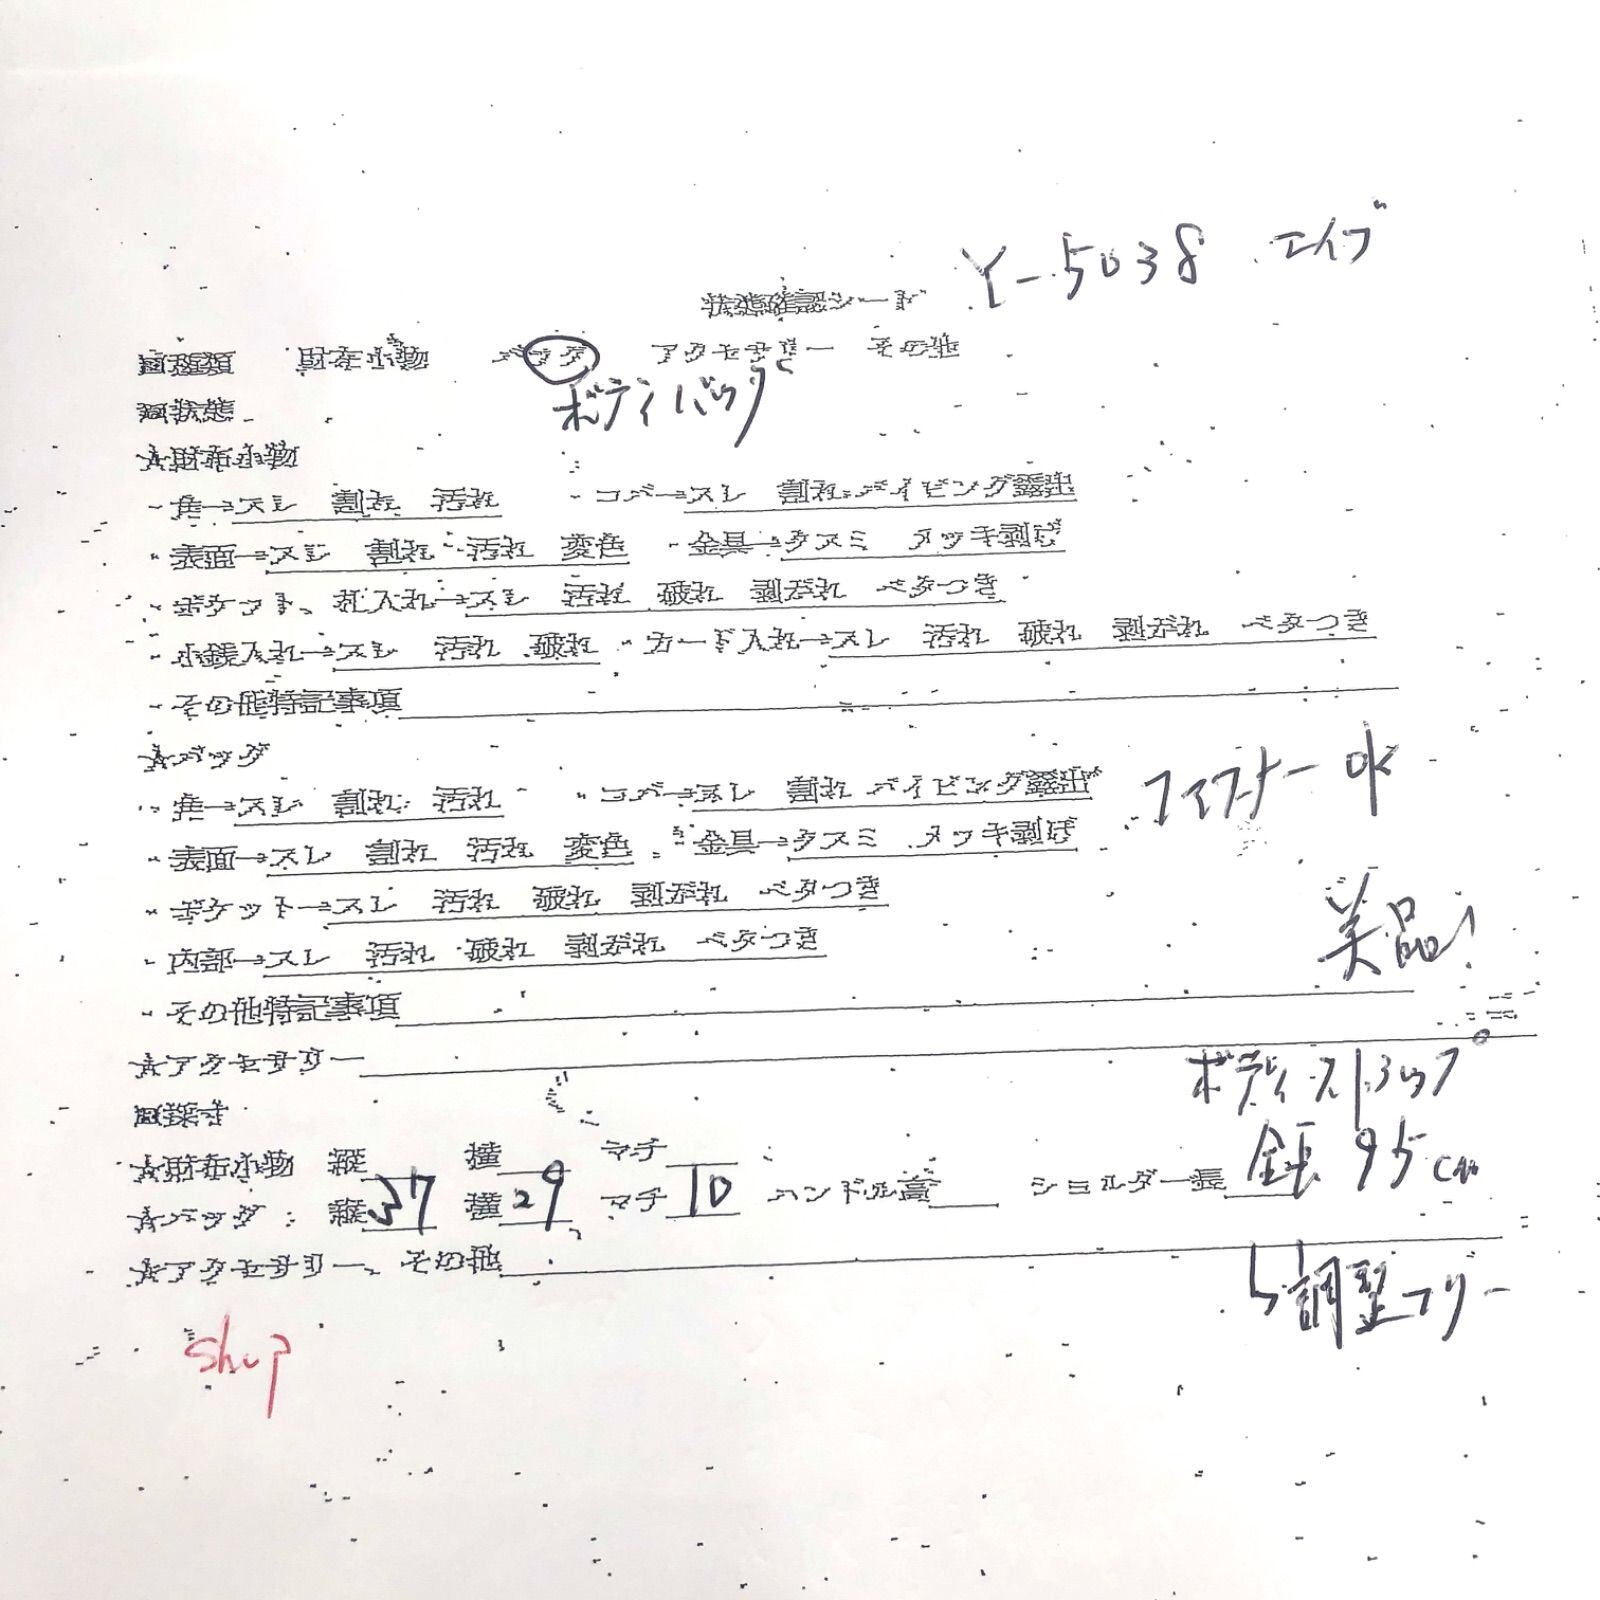 Y-5038 エイプ
状態確認シート
□種類 財布小物 バッグ アクセサリー その他
ボディバッグ
□状態
☆財布小物
・角→スレ 割れ 汚れ ・コバ→スレ 割れ パイピング露出
・表面→スレ 割れ 汚れ 変色 ・金具→クスミ メッキ剥げ
・ポケット、札入れ→スレ 汚れ 破れ 剥がれ ベタつき
・小銭入れ→スレ 汚れ 破れ ・カード入れ→スレ 汚れ 破れ 剥がれ ベタつき
・その他特記事項
☆バッグ
・角→スレ 割れ 汚れ ・コバ→スレ 割れ パイピング露出 ファスナー OK
・表面→スレ 割れ 汚れ 変色 ・金具→クスミ メッキ剥げ
・ポケット→スレ 汚れ 破れ 剥がれ ベタつき
美品!
・内部→スレ 汚れ 破れ 剥がれ ベタつき
・その他特記事項
☆アクセサリー
ボディストラップ
□採寸
☆財布小物 縦 横 マチ
☆バッグ: 縦37 横29 マチ10 ハンドル高 ショルダー長 全長 95cm
☆アクセサリー、その他
↳調整フリー
shop